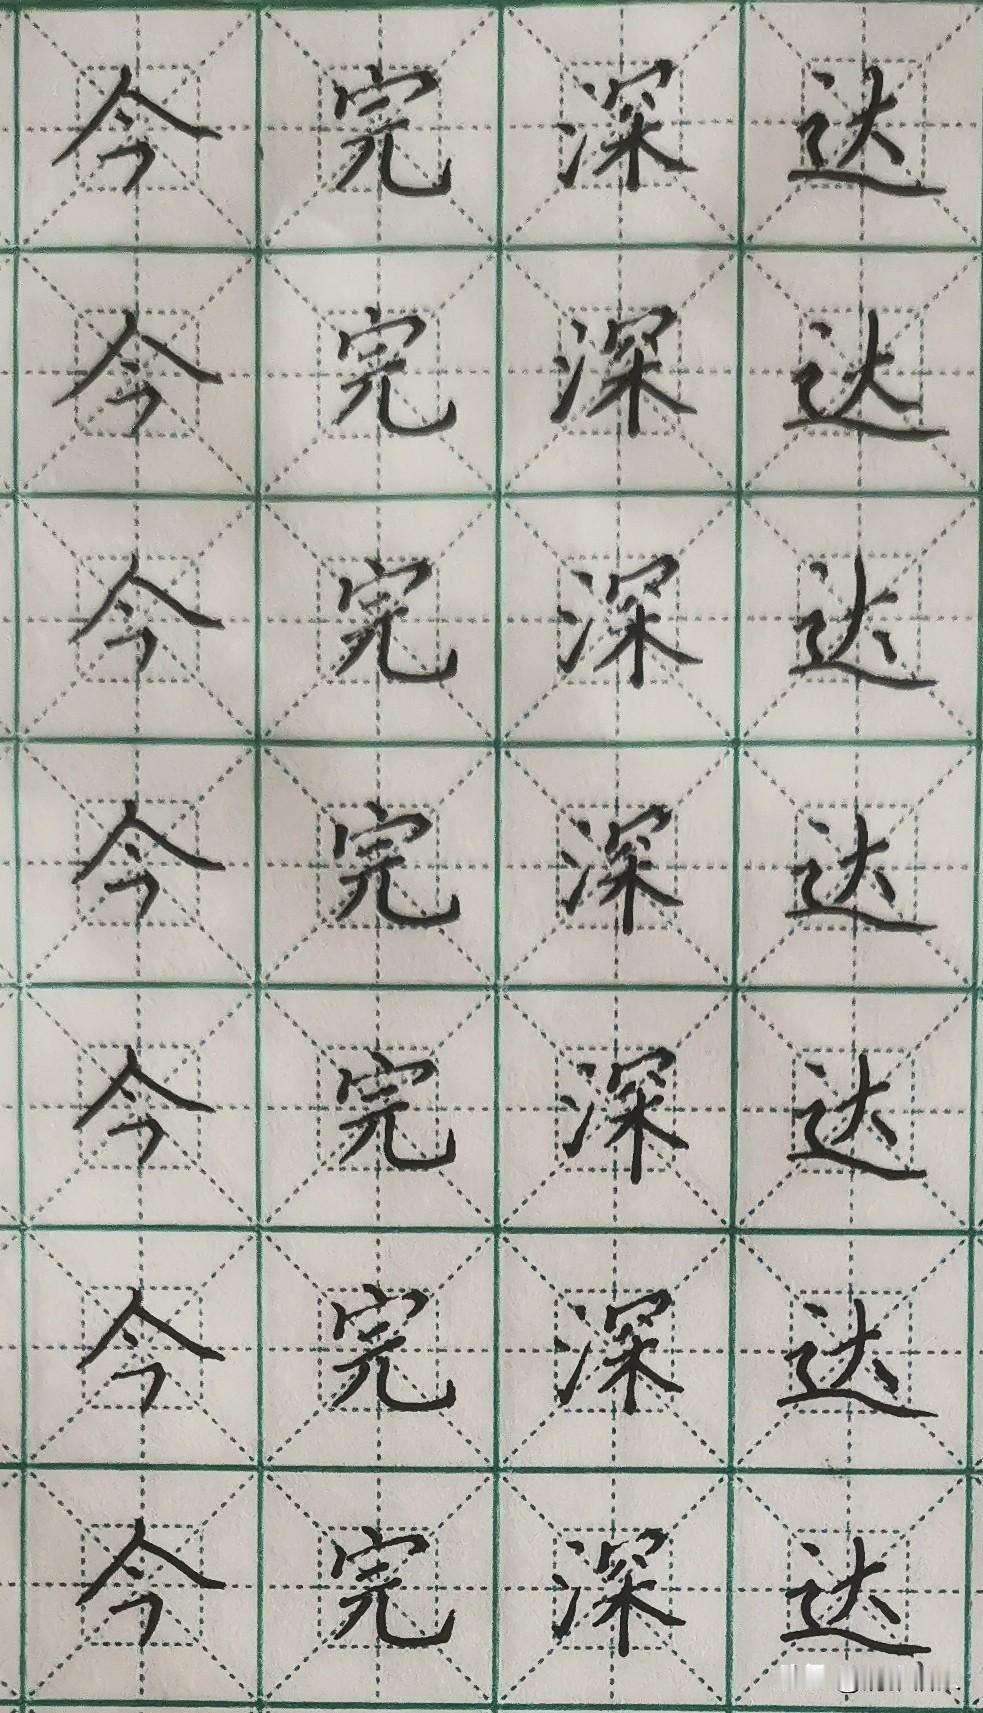 今完深达
今完深达
今完深达
今完深达
今完深达
今完深达
今完深达